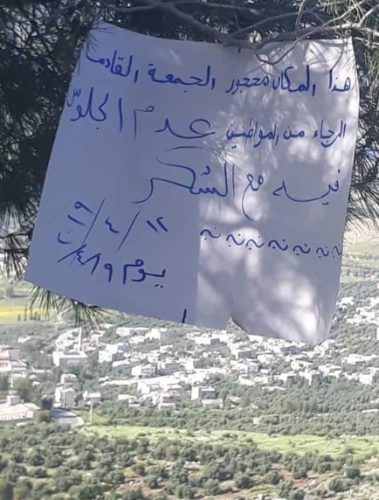 هذا المكان محجوز الجمعة القادمة
الرجاء من المواطنين عدم الجلوس
فيه مع الشكر
١٢ / ٤ / ١٩
يوم ٤/١٩